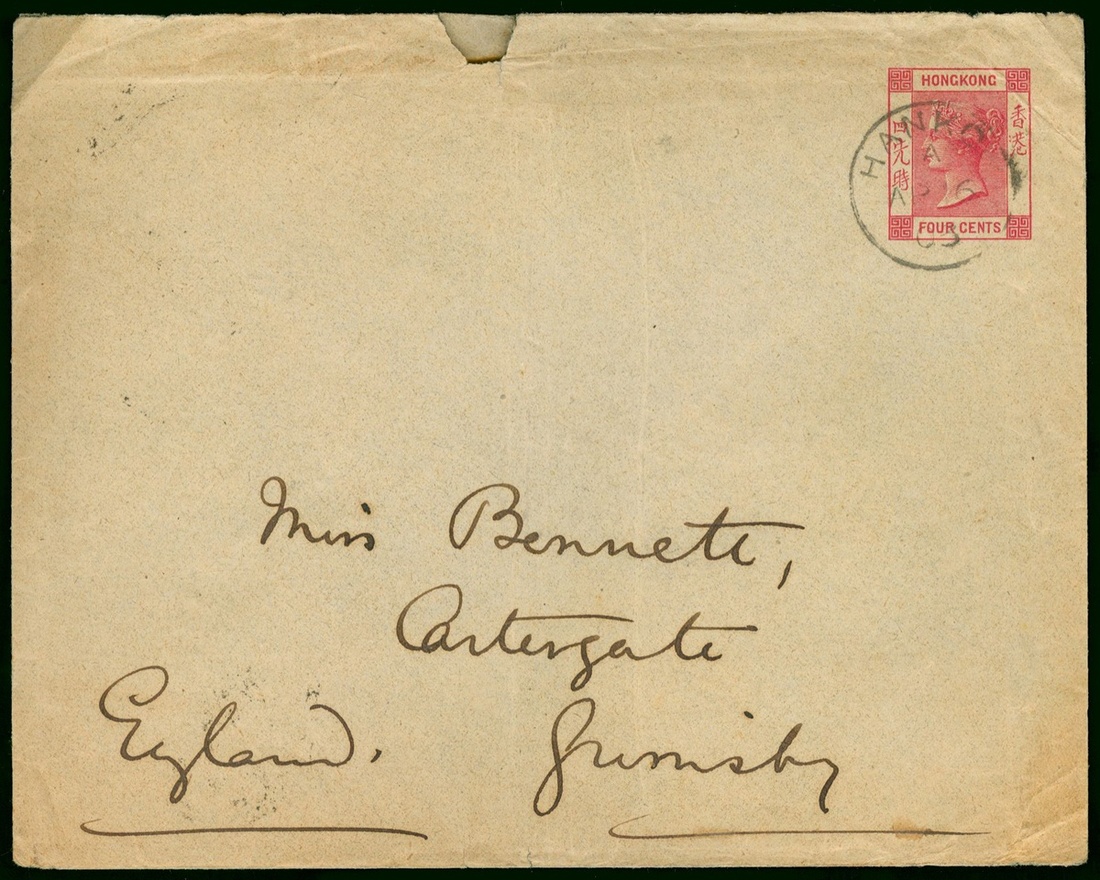 HONGKONG
香港
四先時
FOUR CENTS
HANK
A
6
03
Miss Bennett,
Cartergate
England. Grimsby